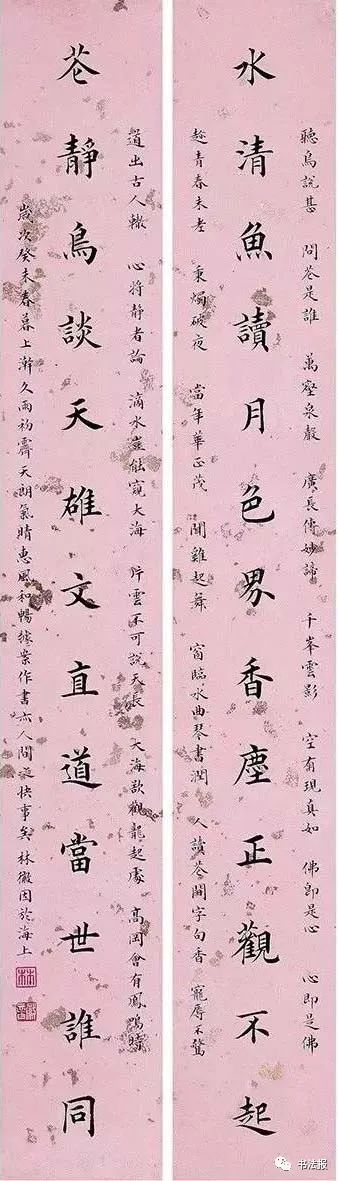 聽鳥說甚 問花是誰 萬壑泉聲 廣長傳妙諦 千峯雲影 空有現真如 佛即是心 心即是佛
水清魚讀月色界香塵正觀不起
趁青春未老 秉燭破夜 當年華正茂 聞雞起舞 窗臨水曲琴書潤 人讀花間字句香 寵辱不驚
道出古人轍 心將静者論 滴水豈能窺大海 片雲不可說天長 大海欲觀龍起處 高岡會有鳳鳴時
花靜鳥談天雄文直道當世誰同
歲次癸未春暮上澣久雨初霽天朗氣晴惠風和暢據案作書亦人間快事矣 林徽因於海上
书法报